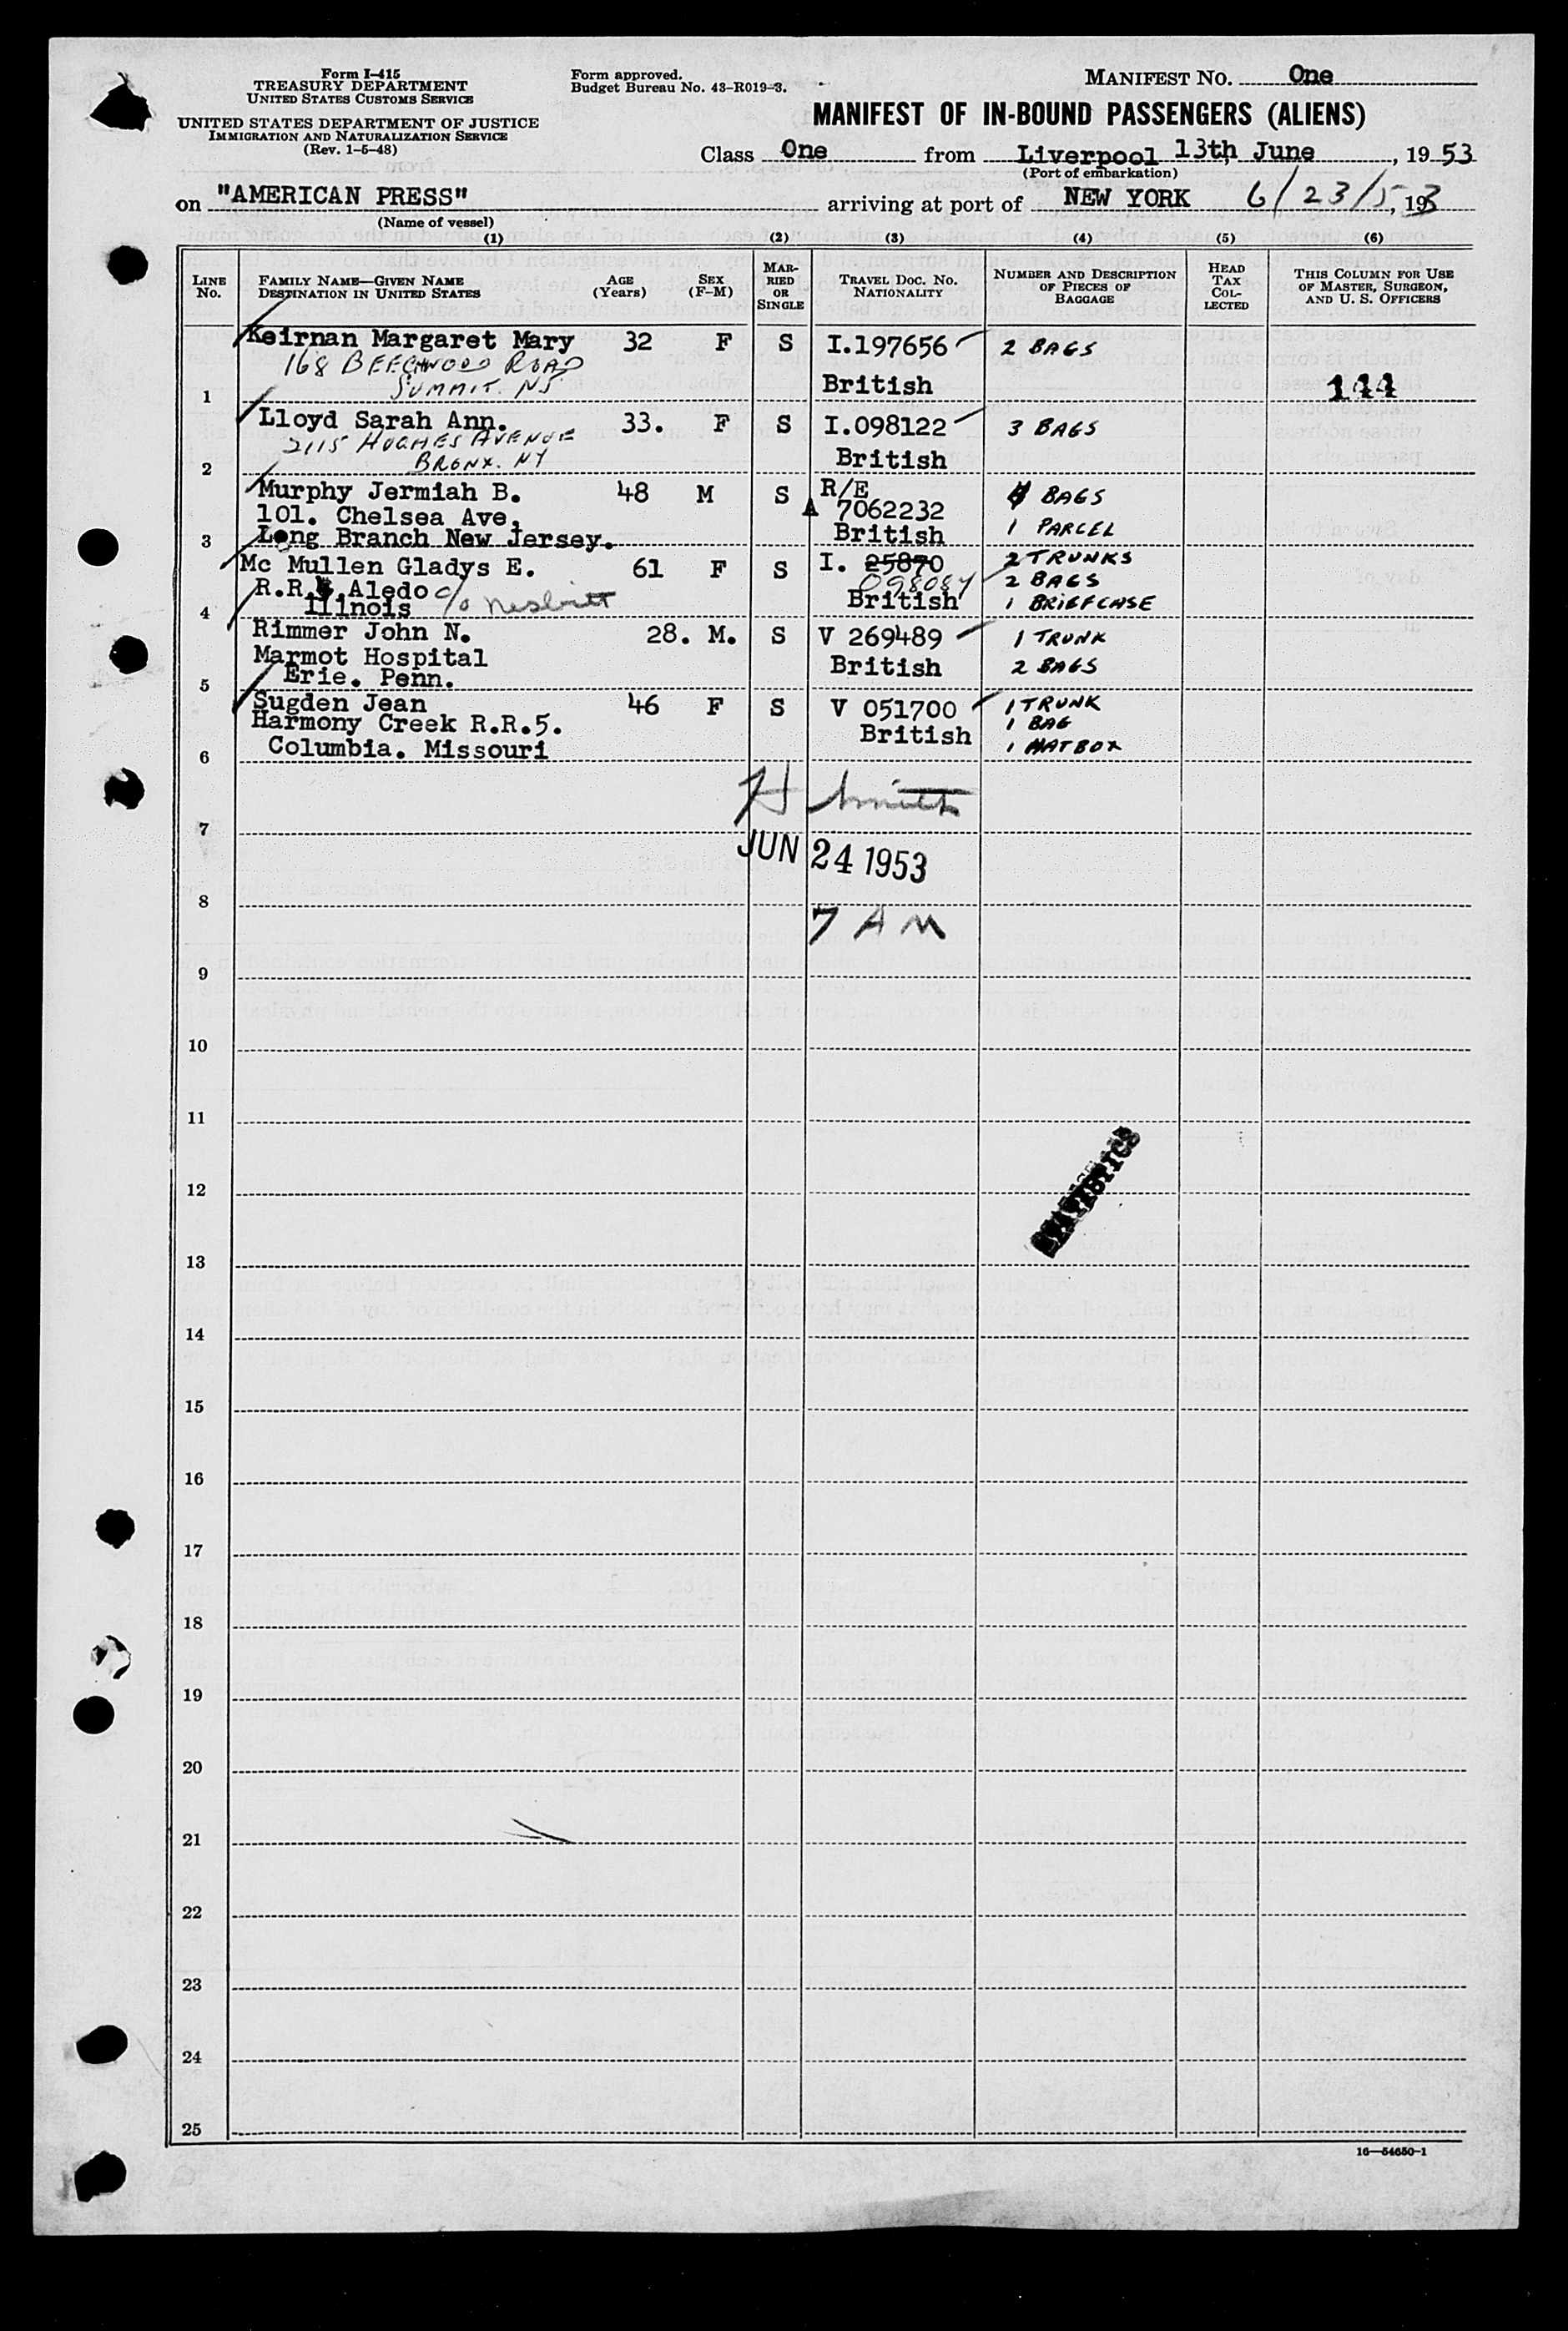 Form I-415
TREASURY DEPARTMENT
UNITED STATES CUSTOMS SERVICE
UNITED STATES DEPARTMENT OF JUSTICE
IMMIGRATION AND NATURALIZATION SERVICE
(Rev. 1-5-48)
Form approved.
Budget Bureau No. 43-R019-3.
MANIFEST NO. One
MANIFEST OF IN-BOUND PASSENGERS (ALIENS)
Class One from Liverpool 13th June, 1953
(Port of embarkation)
on "AMERICAN PRESS" arriving at port of NEW YORK 6/23/53, 193
(Name of vessel)
(1) (2) (3) (4) (5) (6)
LINE No. FAMILY NAME—GIVEN NAME DESTINATION IN UNITED STATES AGE (Years) SEX (F-M) MARRIED OR SINGLE TRAVEL DOC. NO. NATIONALITY NUMBER AND DESCRIPTION OF PIECES OF BAGGAGE HEAD TAX COLLECTED THIS COLUMN FOR USE OF MASTER, SURGEON, AND U. S. OFFICERS
Keirnan Margaret Mary 32 F S I.197656 2 BAGS
168 BEECHWOOD ROAD
1 SUMMIT. NJ British 144
Lloyd Sarah Ann. 33. F S I.098122 3 BAGS
2115 HUGHES AVENUE
2 BRONX. NY British
Murphy Jermiah B. 48 M S R/E 4 BAGS
101. Chelsea Ave, A 7062232 1 PARCEL
3 Long Branch New Jersey. British
Mc Mullen Gladys E. 61 F S I. 25870 2 TRUNKS
R.R. Aledo c/o Nesbitt 098084 2 BAGS
4 Illinois British 1 BRIEFCASE
Rimmer John N. 28. M. S V 269489 1 TRUNK
Marmot Hospital British 2 BAGS
5 Erie. Penn.
Sugden Jean 46 F S V 051700 1 TRUNK
Harmony Creek R.R.5. British 1 BAG
6 Columbia. Missouri 1 HATBOX
7 H Smith
JUN 24 1953
8
7 AM
9
10
11
12
STATISTICS
13
14
15
16
17
18
19
20
21
22
23
24
25
16—54650-1